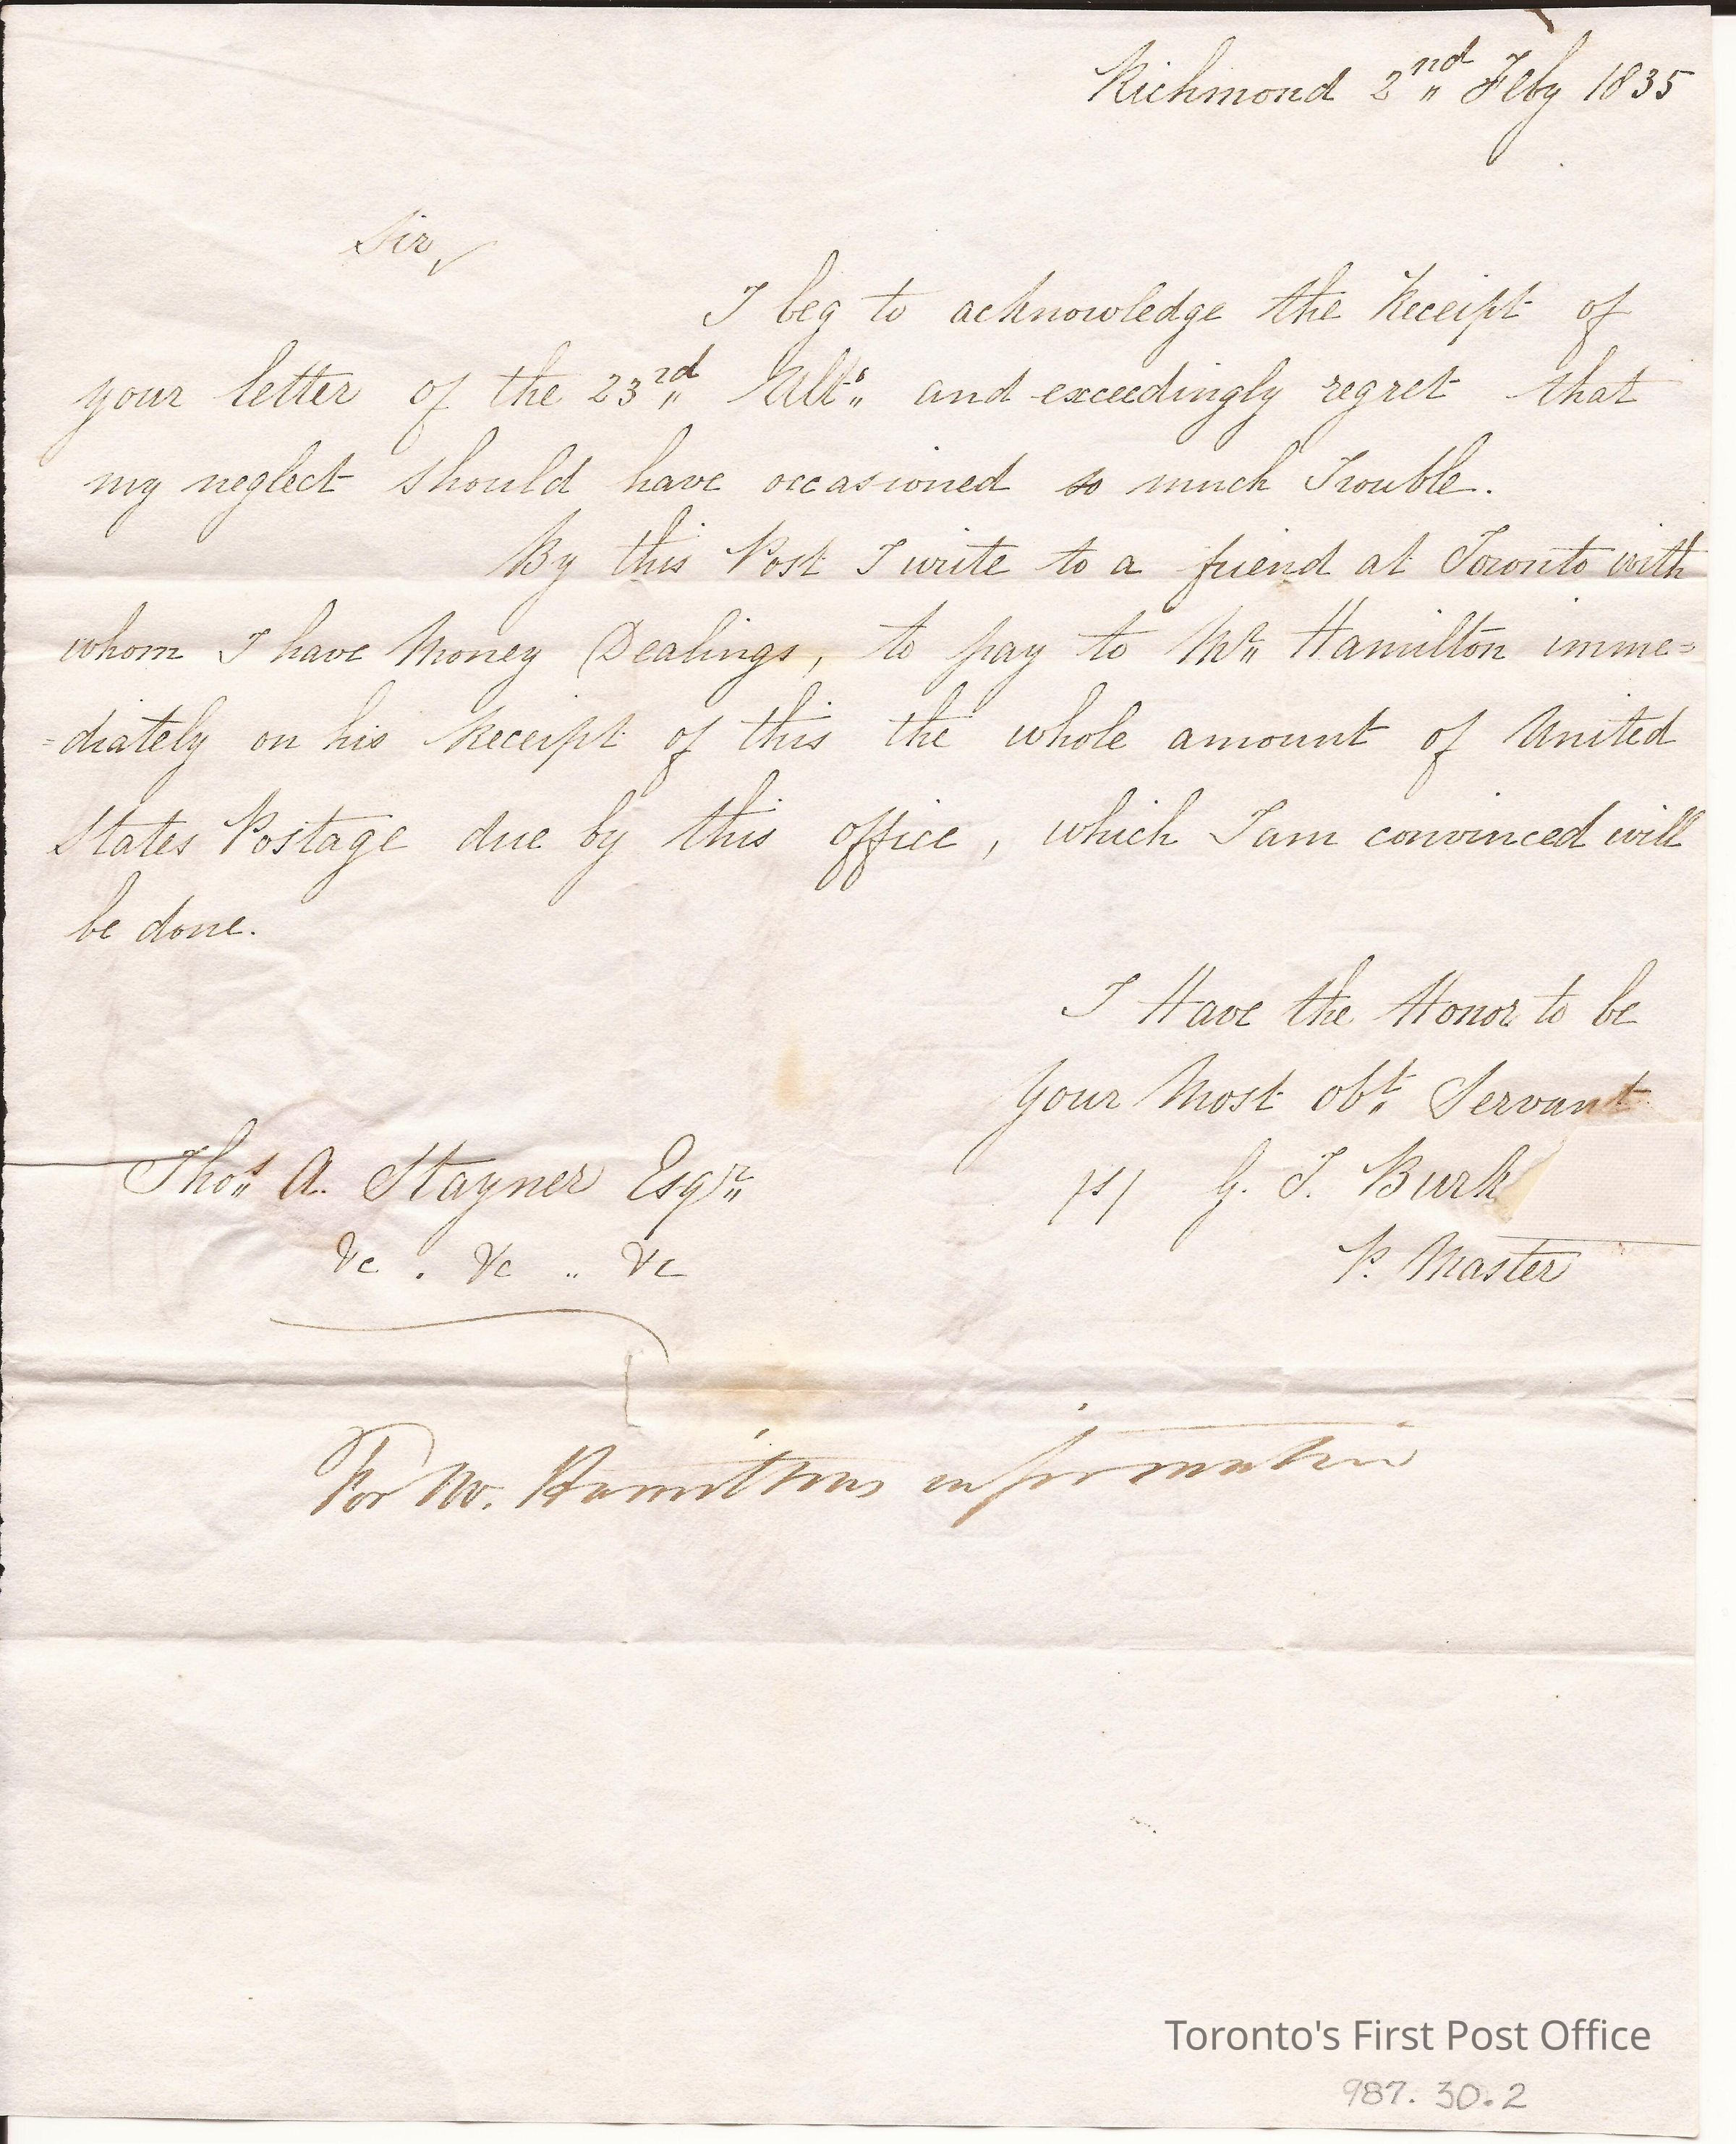 Richmond 2nd Feby 1835
Sir,
I beg to acknowledge the Receipt of
your letter of the 23rd Ulto. and exceedingly regret that
my neglect should have occasioned so much Trouble.
By this Post I write to a friend at Toronto with
whom I have Money Dealings, to pay to Mr. Hamilton imme=
=diately on his Receipt of this the whole amount of United
States Postage due by this office, which I am convinced will
be done.
I Have the Honor to be
Your Most Obt. Servant
Thos. A. Stayner Esqr. /s/ G. T. Burk
&c . &c .. &c P. Master
For Mr. Hamiltons information
Toronto's First Post Office
987.30.2